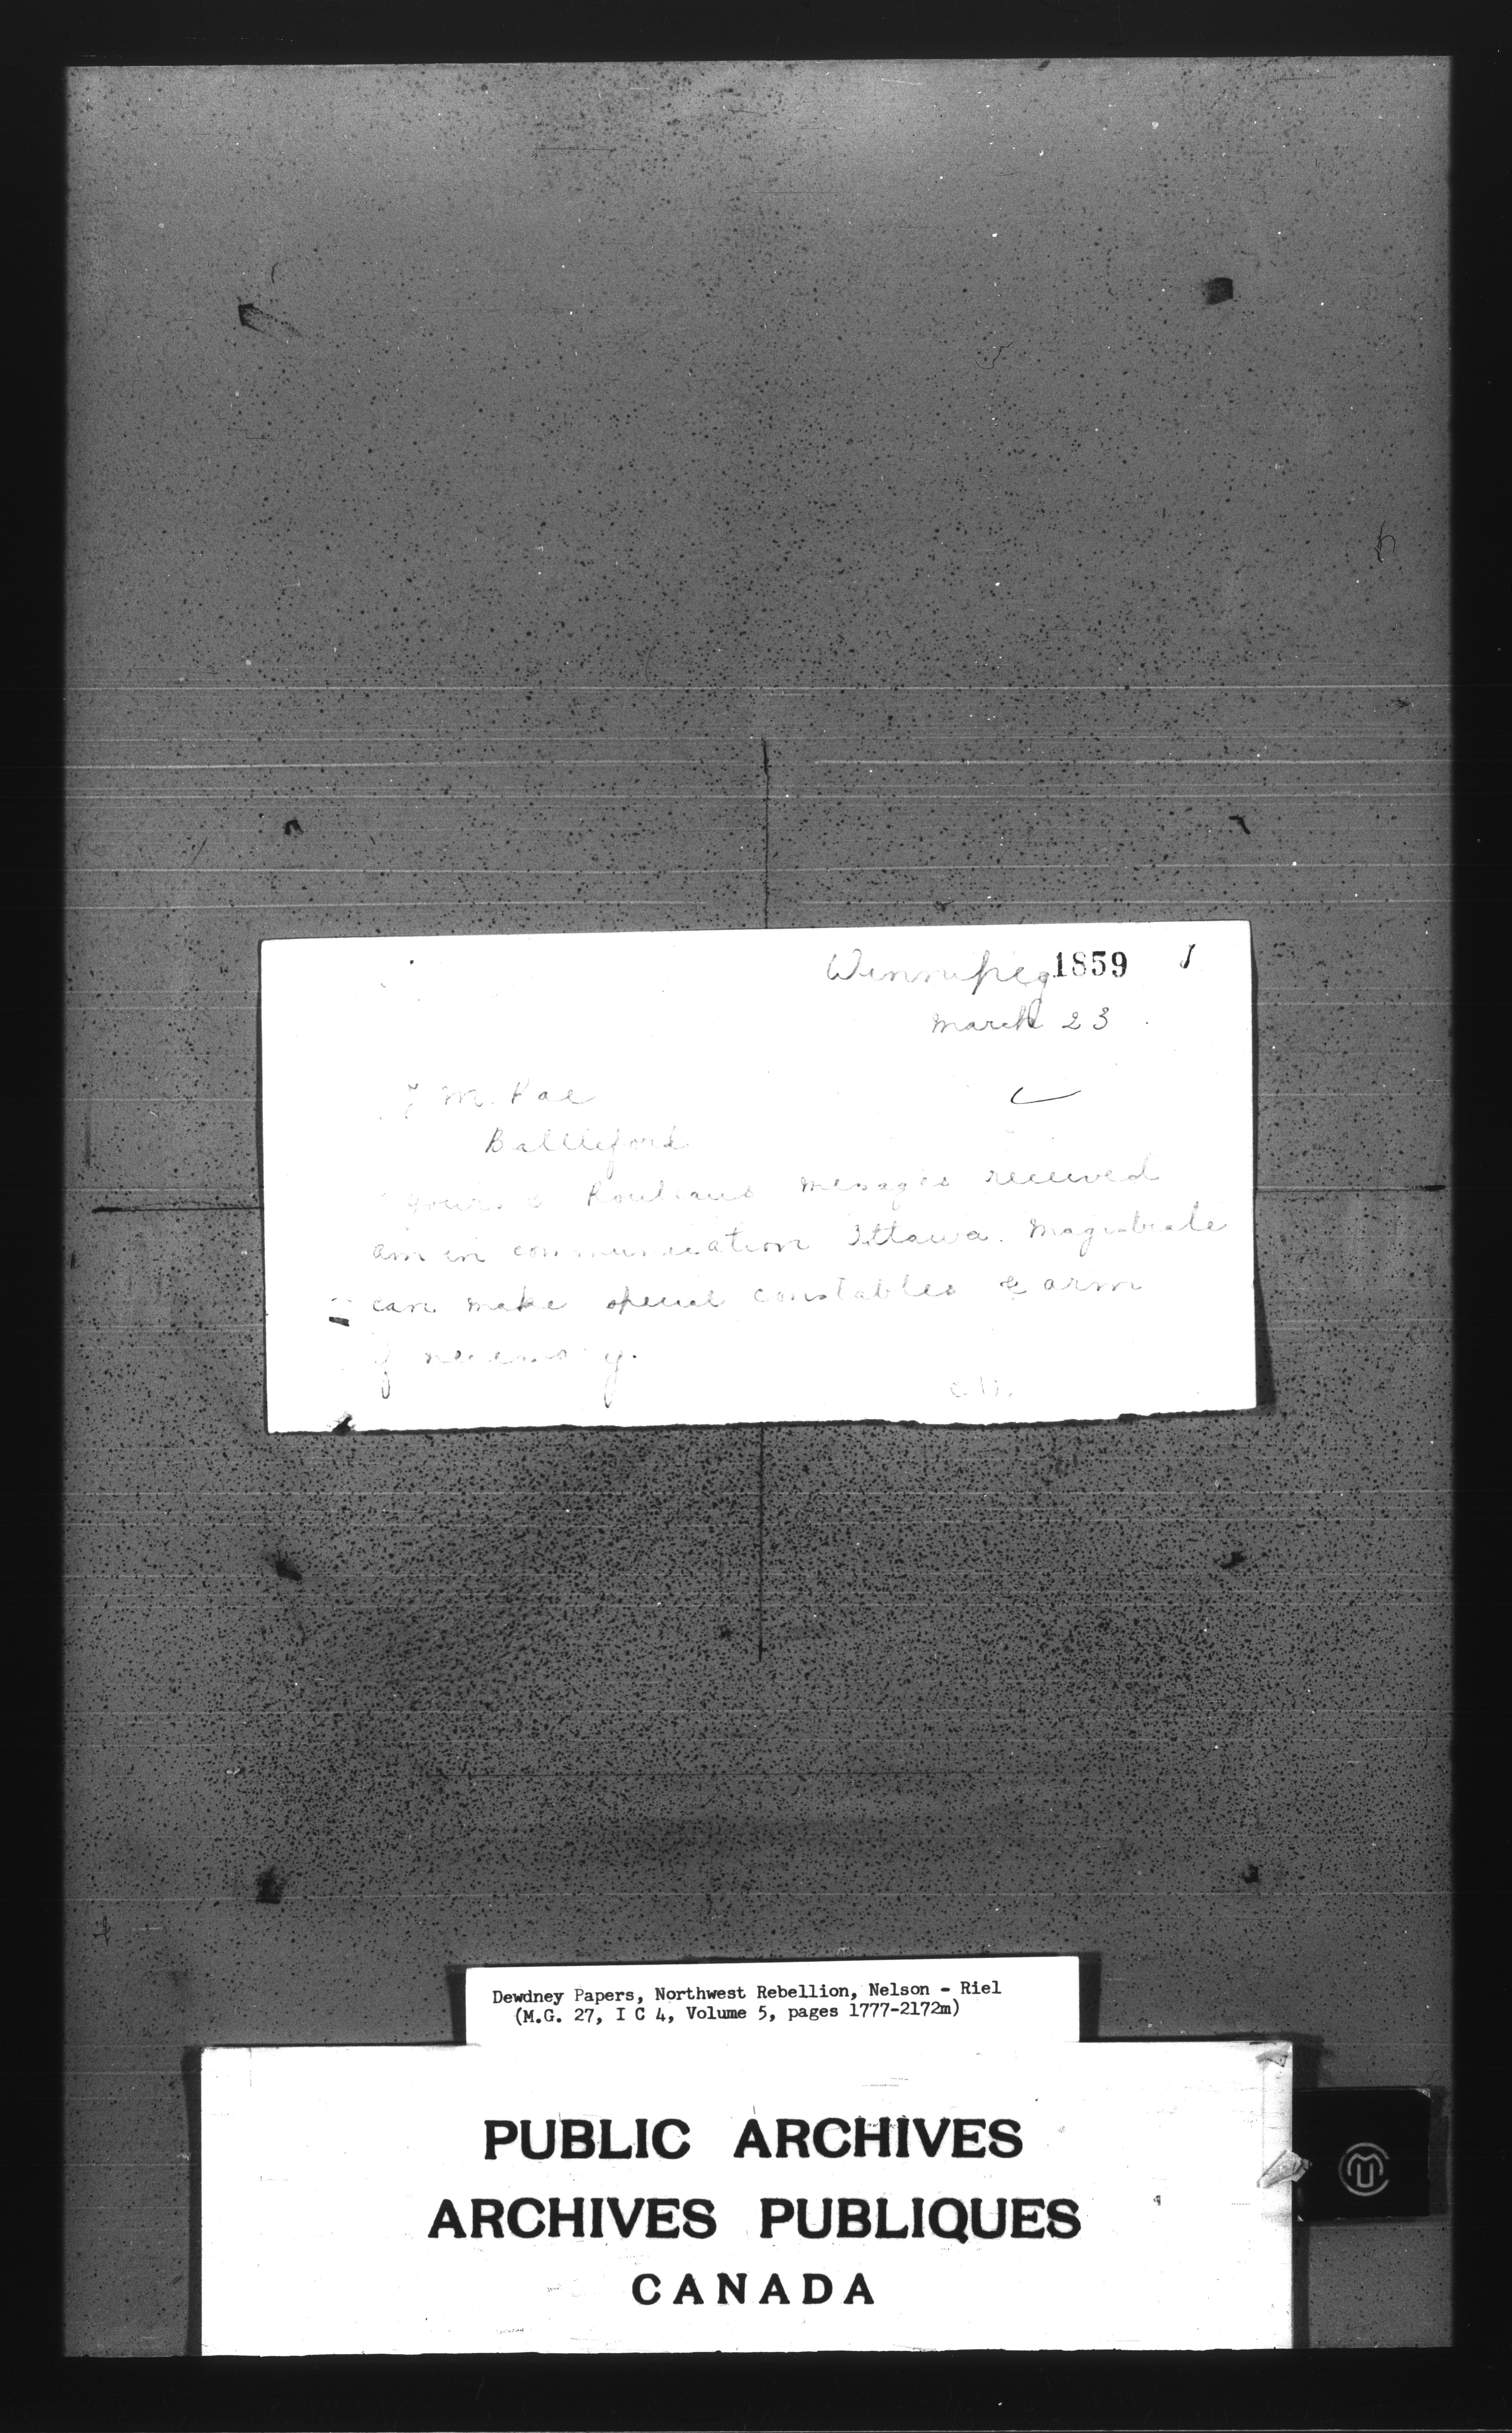 Winnipeg 1859
March 23
J M. Rae
Battleford
Yours & Rouleaus messages received
am in communication Ottawa. Magistrate
can make special constables & arm
if necessary.
E.D.
Dewdney Papers, Northwest Rebellion, Nelson - Riel
(M.G. 27, I C 4, Volume 5, pages 1777-2172m)
PUBLIC ARCHIVES
ARCHIVES PUBLIQUES
CANADA